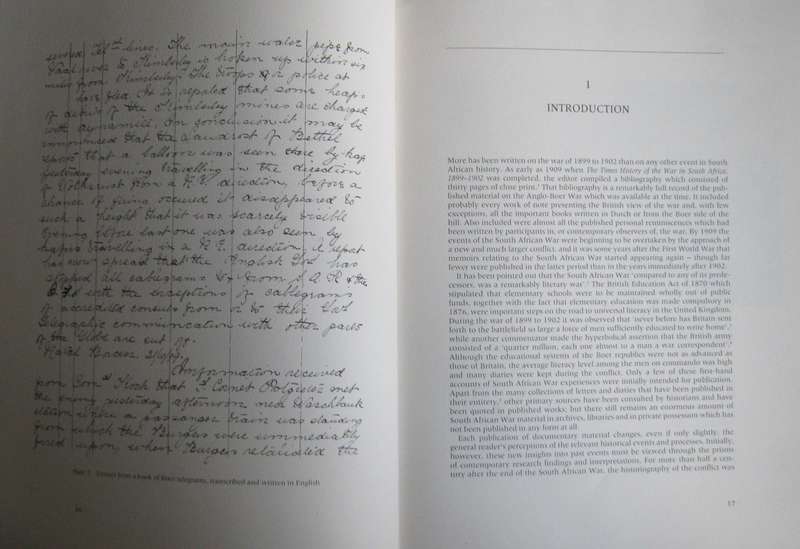 lines. The main water pipe from
Vaal river to Kimberley is broken up within six
miles from Kimberley. The troops & police at
have fled. It is reported that some heaps
of debris of the Kimberley mines are charged
with dynamite, in conclusion it may be
mentioned that the Landrost of Bethel
reports that a balloon was seen there by
yesterday evening travelling in the direction
of from a N.E. direction, before a
chance of firing occured it disappeared to
such a height that it was scarcely visible
Evening before last one was also seen by
travelling in a N.E. direction. A report
has now spread that the English Govt has
stopped all cablegrams to & from S. A. R & the
with the exceptions of cablegrams
of accredited consuls from & to their Govt
Telegraphic communication with other parts
of the Globe are cut off.
Information received
from Genl Kock that Cornet Potgieter met
the enemy yesterday afternoon near Waschbank
station where a passenger train was standing
from which the Burgers were immediately
fired upon, when Burgers retaliated the
Extract from a book of Boer telegrams, transcribed and written in English
1
INTRODUCTION
More has been written on the war of 1899 to 1902 than on any other event in South
African history. As early as 1909 when The Times History of the War in South Africa,
1899-1902 was completed, the editor compiled a bibliography which consisted of
thirty pages of close print.¹ That bibliography is a remarkably full record of the pub-
lished material on the Anglo-Boer War which was available at the time. It included
probably every work of note presenting the British view of the war and, with few
exceptions, all the important books written in Dutch or from the Boer side of the
hill. Also included were almost all the published personal reminiscences which had
been written by participants in, or contemporary observers of, the war. By 1909 the
events of the South African War were beginning to be overtaken by the approach of
a new and much larger conflict, and it was some years after the First World War that
memoirs relating to the South African War started appearing again – though far
fewer were published in the latter period than in the years immediately after 1902.
It has been pointed out that the South African War 'compared to any of its prede-
cessors, was a remarkably literary war'.² The British Education Act of 1870 which
stipulated that elementary schools were to be maintained wholly out of public
funds, together with the fact that elementary education was made compulsory in
1876, were important steps on the road to universal literacy in the United Kingdom.
During the war of 1899 to 1902 it was observed that 'never before has Britain sent
forth to the battlefield so large a force of men sufficiently educated to write home',³
while another commentator made the hyperbolical assertion that the British army
consisted of a 'quarter million, each one almost to a man a war correspondent'.⁴
Although the educational systems of the Boer republics were not as advanced as
those of Britain, the average literacy level among the men on commando was high
and many diaries were kept during the conflict. Only a few of these first-hand
accounts of South African War experiences were initially intended for publication.
Apart from the many collections of letters and diaries that have been published in
their entirety,⁵ other primary sources have been consulted by historians and have
been quoted in published works; but there still remains an enormous amount of
South African War material in archives, libraries and in private possession which has
not been published in any form at all.
Each publication of documentary material changes, even if only slightly, the
general reader's perceptions of the relevant historical events and processes. Initially,
however, these new insights into past events must be viewed through the prisms
of contemporary research findings and interpretations. For more than half a cen-
tury after the end of the South African War, the historiography of the conflict was
17